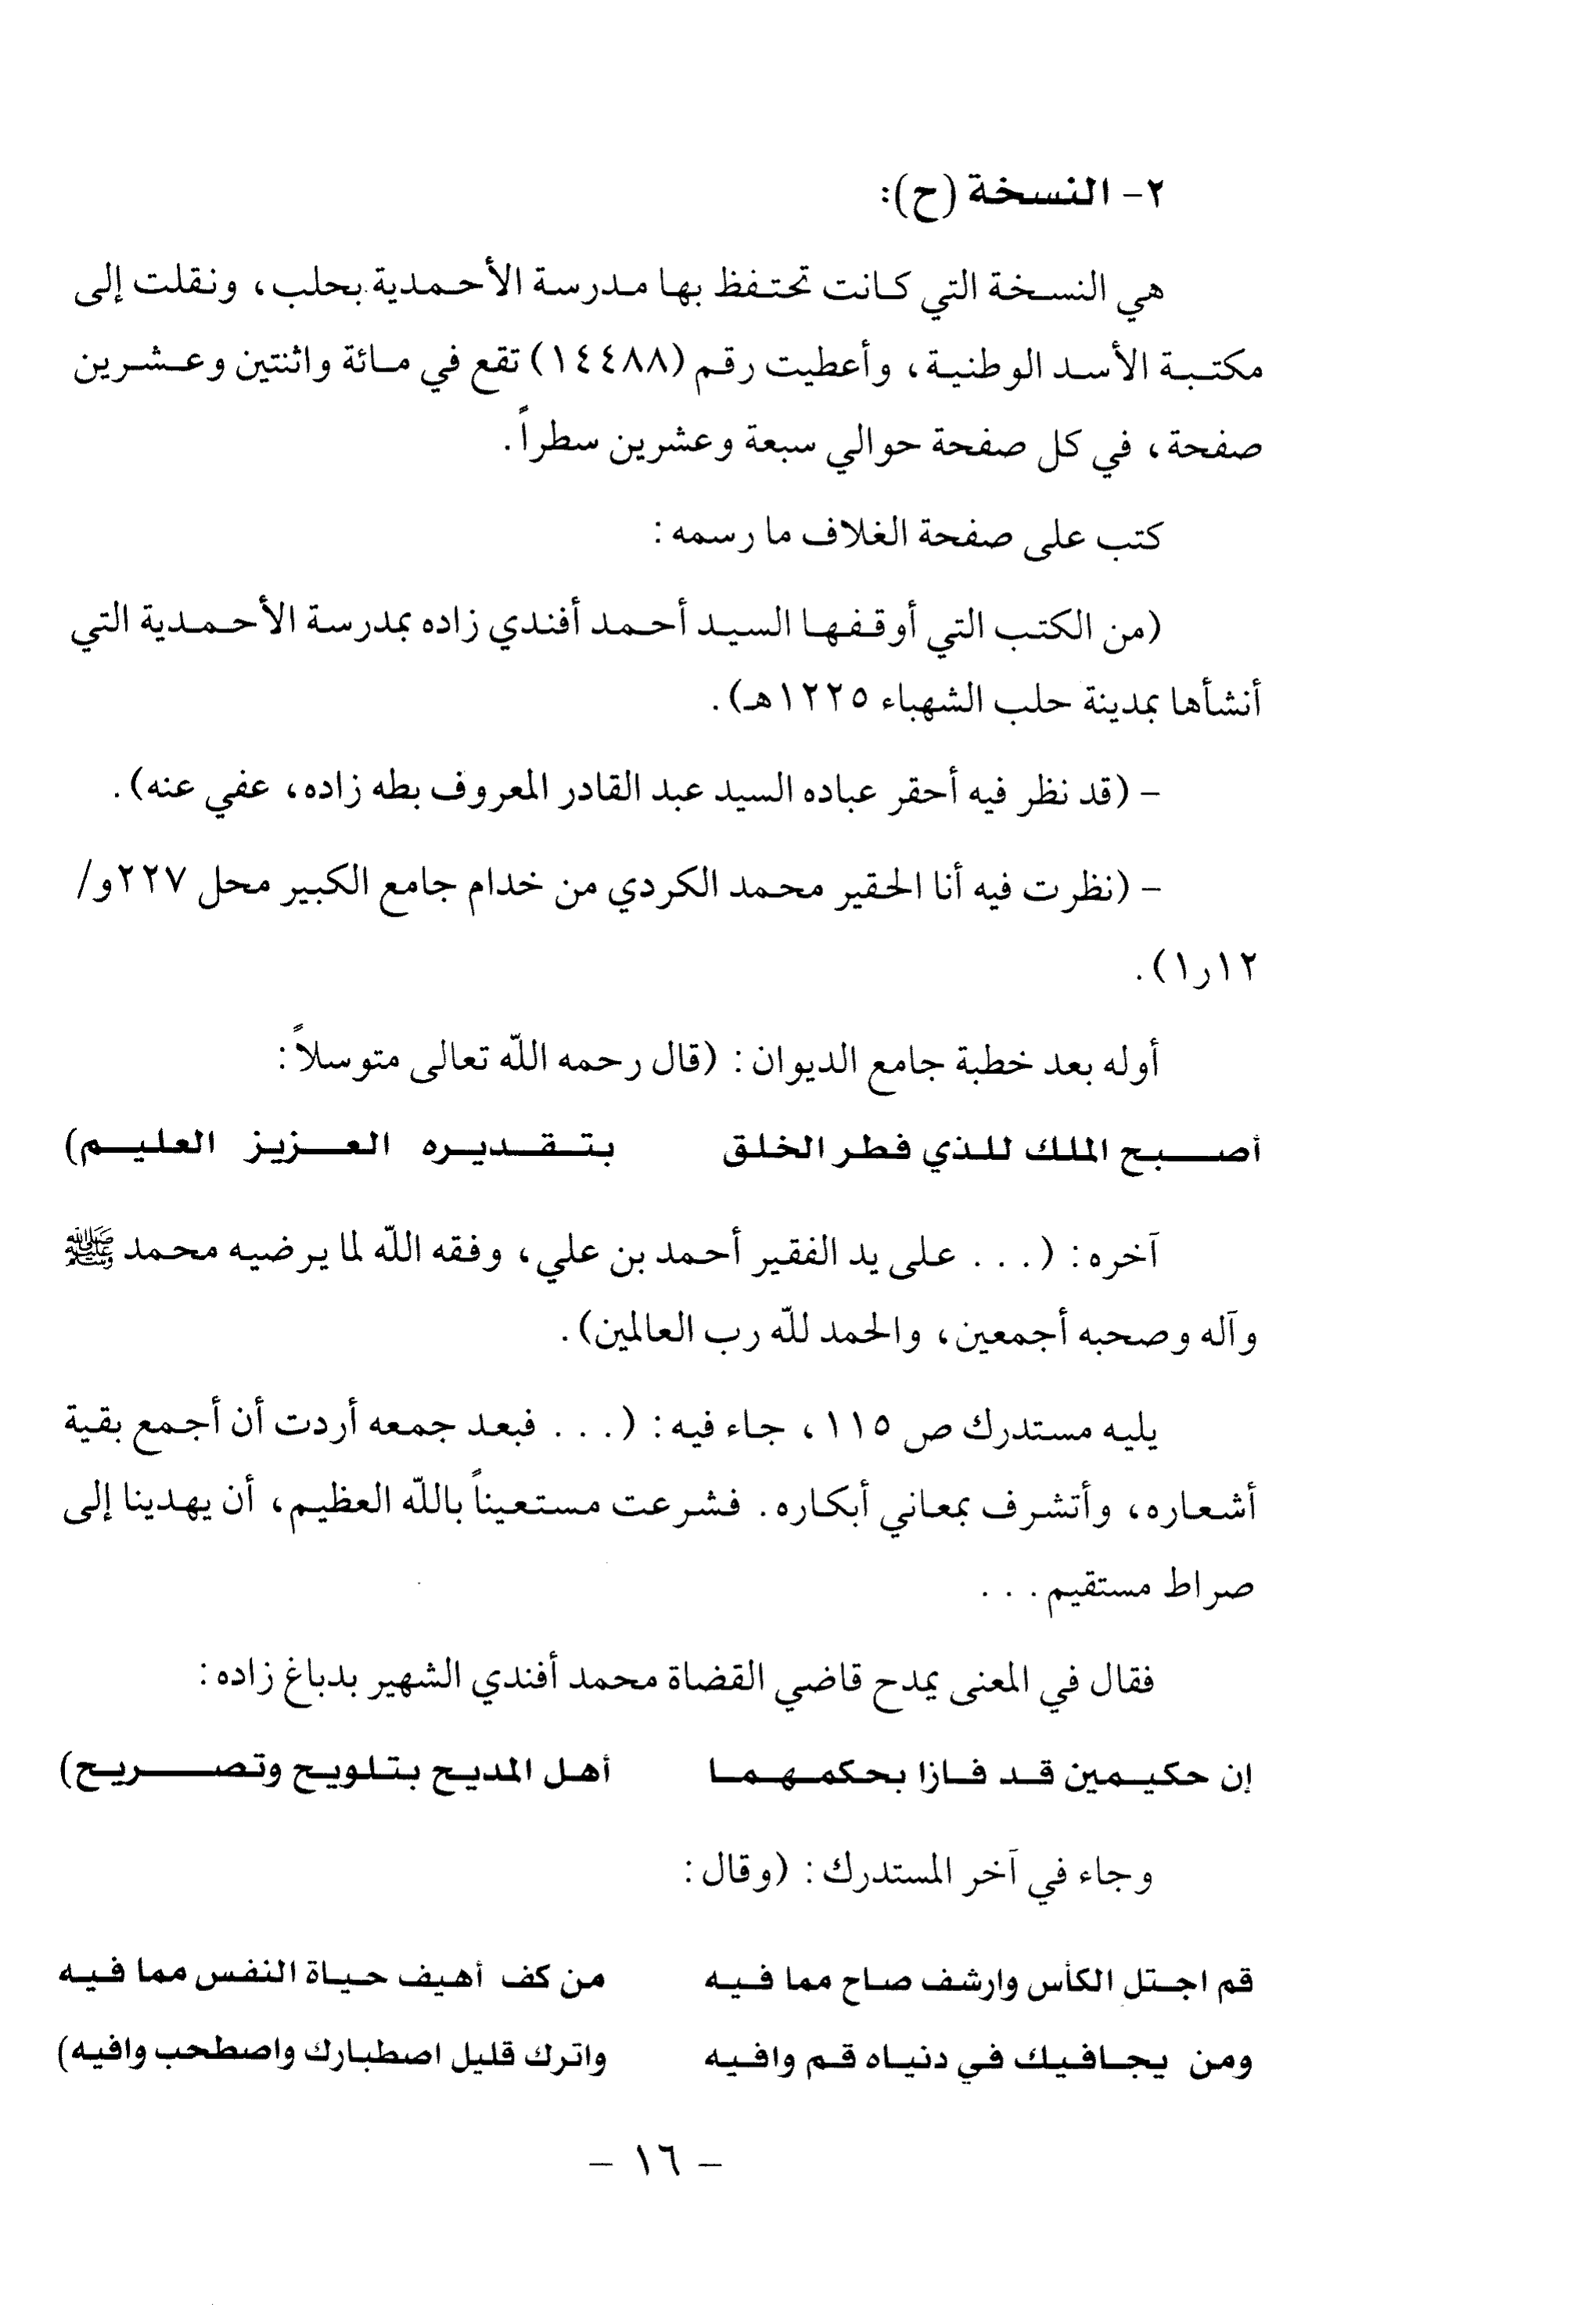 ٢- النسخة (ح):
هي النسخة التي كانت تحتفظ بها مدرسة الأحمدية بحلب، ونقلت إلى
مكتبة الأسد الوطنية، وأعطيت رقم (١٤٤٨٨) تقع في مائة واثنتين وعشرين
صفحة، في كل صفحة حوالي سبعة وعشرين سطراً.
كتب على صفحة الغلاف ما رسمه:
(من الكتب التي أوقفها السيد أحمد أفندي زاده بمدرسة الأحمدية التي
أنشأها بمدينة حلب الشهباء ١٢٢٥هـ).
- (قد نظر فيه أحقر عباده السيد عبد القادر المعروف بطه زاده، عفي عنه).
- (نظرت فيه أنا الحقير محمد الكردي من خدام جامع الكبير محل ٢٢٧و/
١٢ر١).
أوله بعد خطبة جامع الديوان: (قال رحمه اللّه تعالى متوسلاً:
أصبح الملك للذي فطر الخلق بتقديره العزيز العليم)
آخره: (. . . على يد الفقير أحمد بن علي، وفقه اللّه لما يرضيه محمد ﷺ
وآله وصحبه أجمعين، والحمد للّه رب العالمين).
يليه مستدرك ص ١١٥، جاء فيه: (. . . فبعد جمعه أردت أن أجمع بقية
أشعاره، وأتشرف بمعاني أبكاره. فشرعت مستعيناً باللّه العظيم، أن يهدينا إلى
صراط مستقيم. . .
فقال في المعنى يمدح قاضي القضاة محمد أفندي الشهير بدباغ زاده:
إن حكيمين قد فازا بحكمهما أهل المديح بتلويح وتصريح)
وجاء في آخر المستدرك: (وقال:
قم اجتل الكأس وارشف صاح مما فيه من كف أهيف حياة النفس مما فيه
ومن يجافيك في دنياه قم وافيه واترك قليل اصطبارك واصطحب وافيه)
- ١٦ -